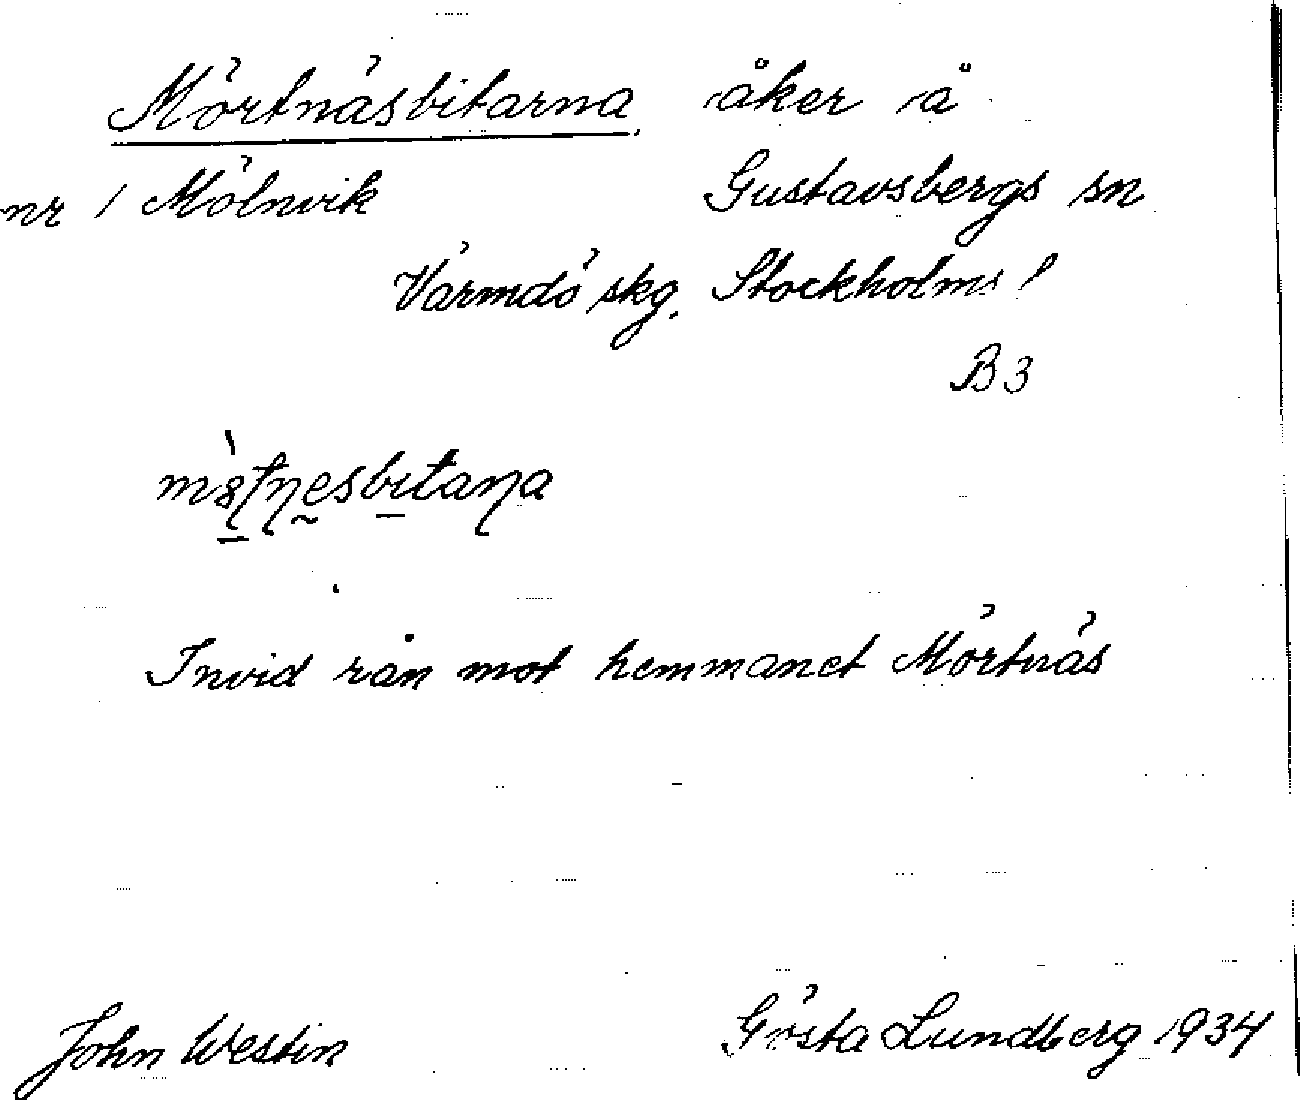 Mörtnäsbitarna, åker å
nr 1 Mölnvik Gustavsbergs sn
Värmdö skg. Stockholms l
B3
Invid rån mot hemmanet Mörtnäs
John Westin Gösta Lundberg 1934